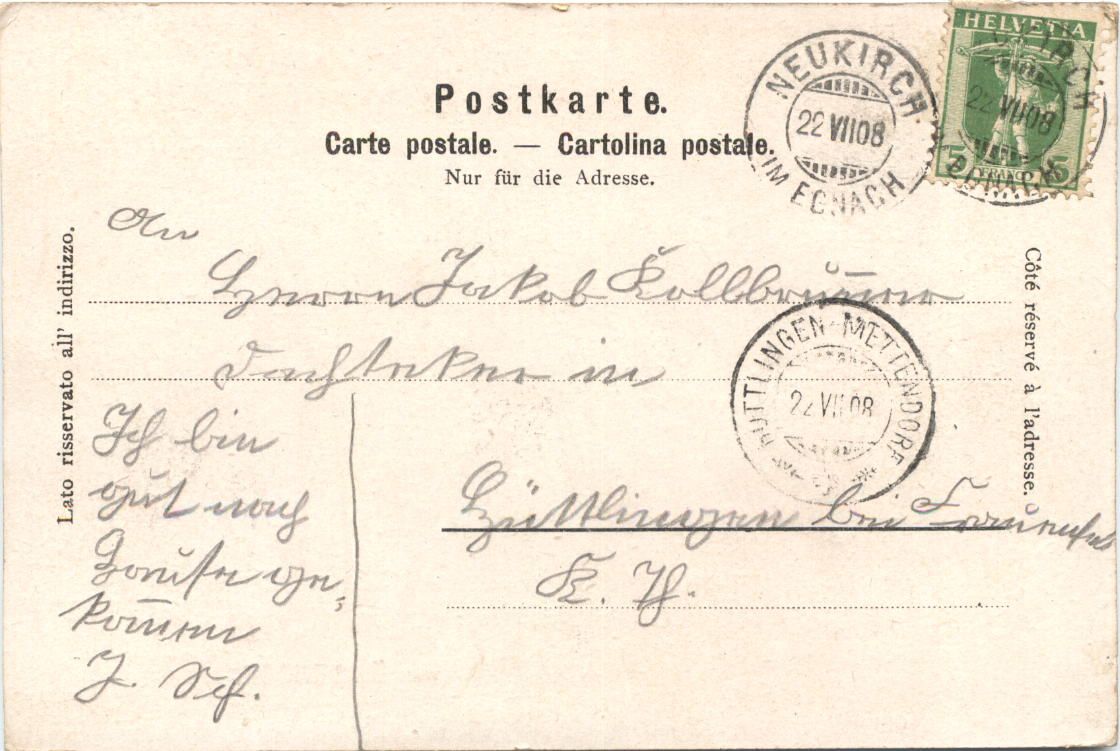 Postkarte.
Carte postale. — Cartolina postale.
Nur für die Adresse.
NEUKIRCH
22 VII 08
IM EGNACH
HELVETIA
5
FRANCO
5
22 VII 08
Lato risservato all' indirizzo.
Côté réservé à l'adresse.
An
Herrn Jakob Kollbrunner
in
HÜTTLINGEN-METTENDORF
22 VII 08
Hüttlingen bei Frauenfeld
K. Th.
Ich bin
gut nach
Hause ge-
kommen
J. Sch.